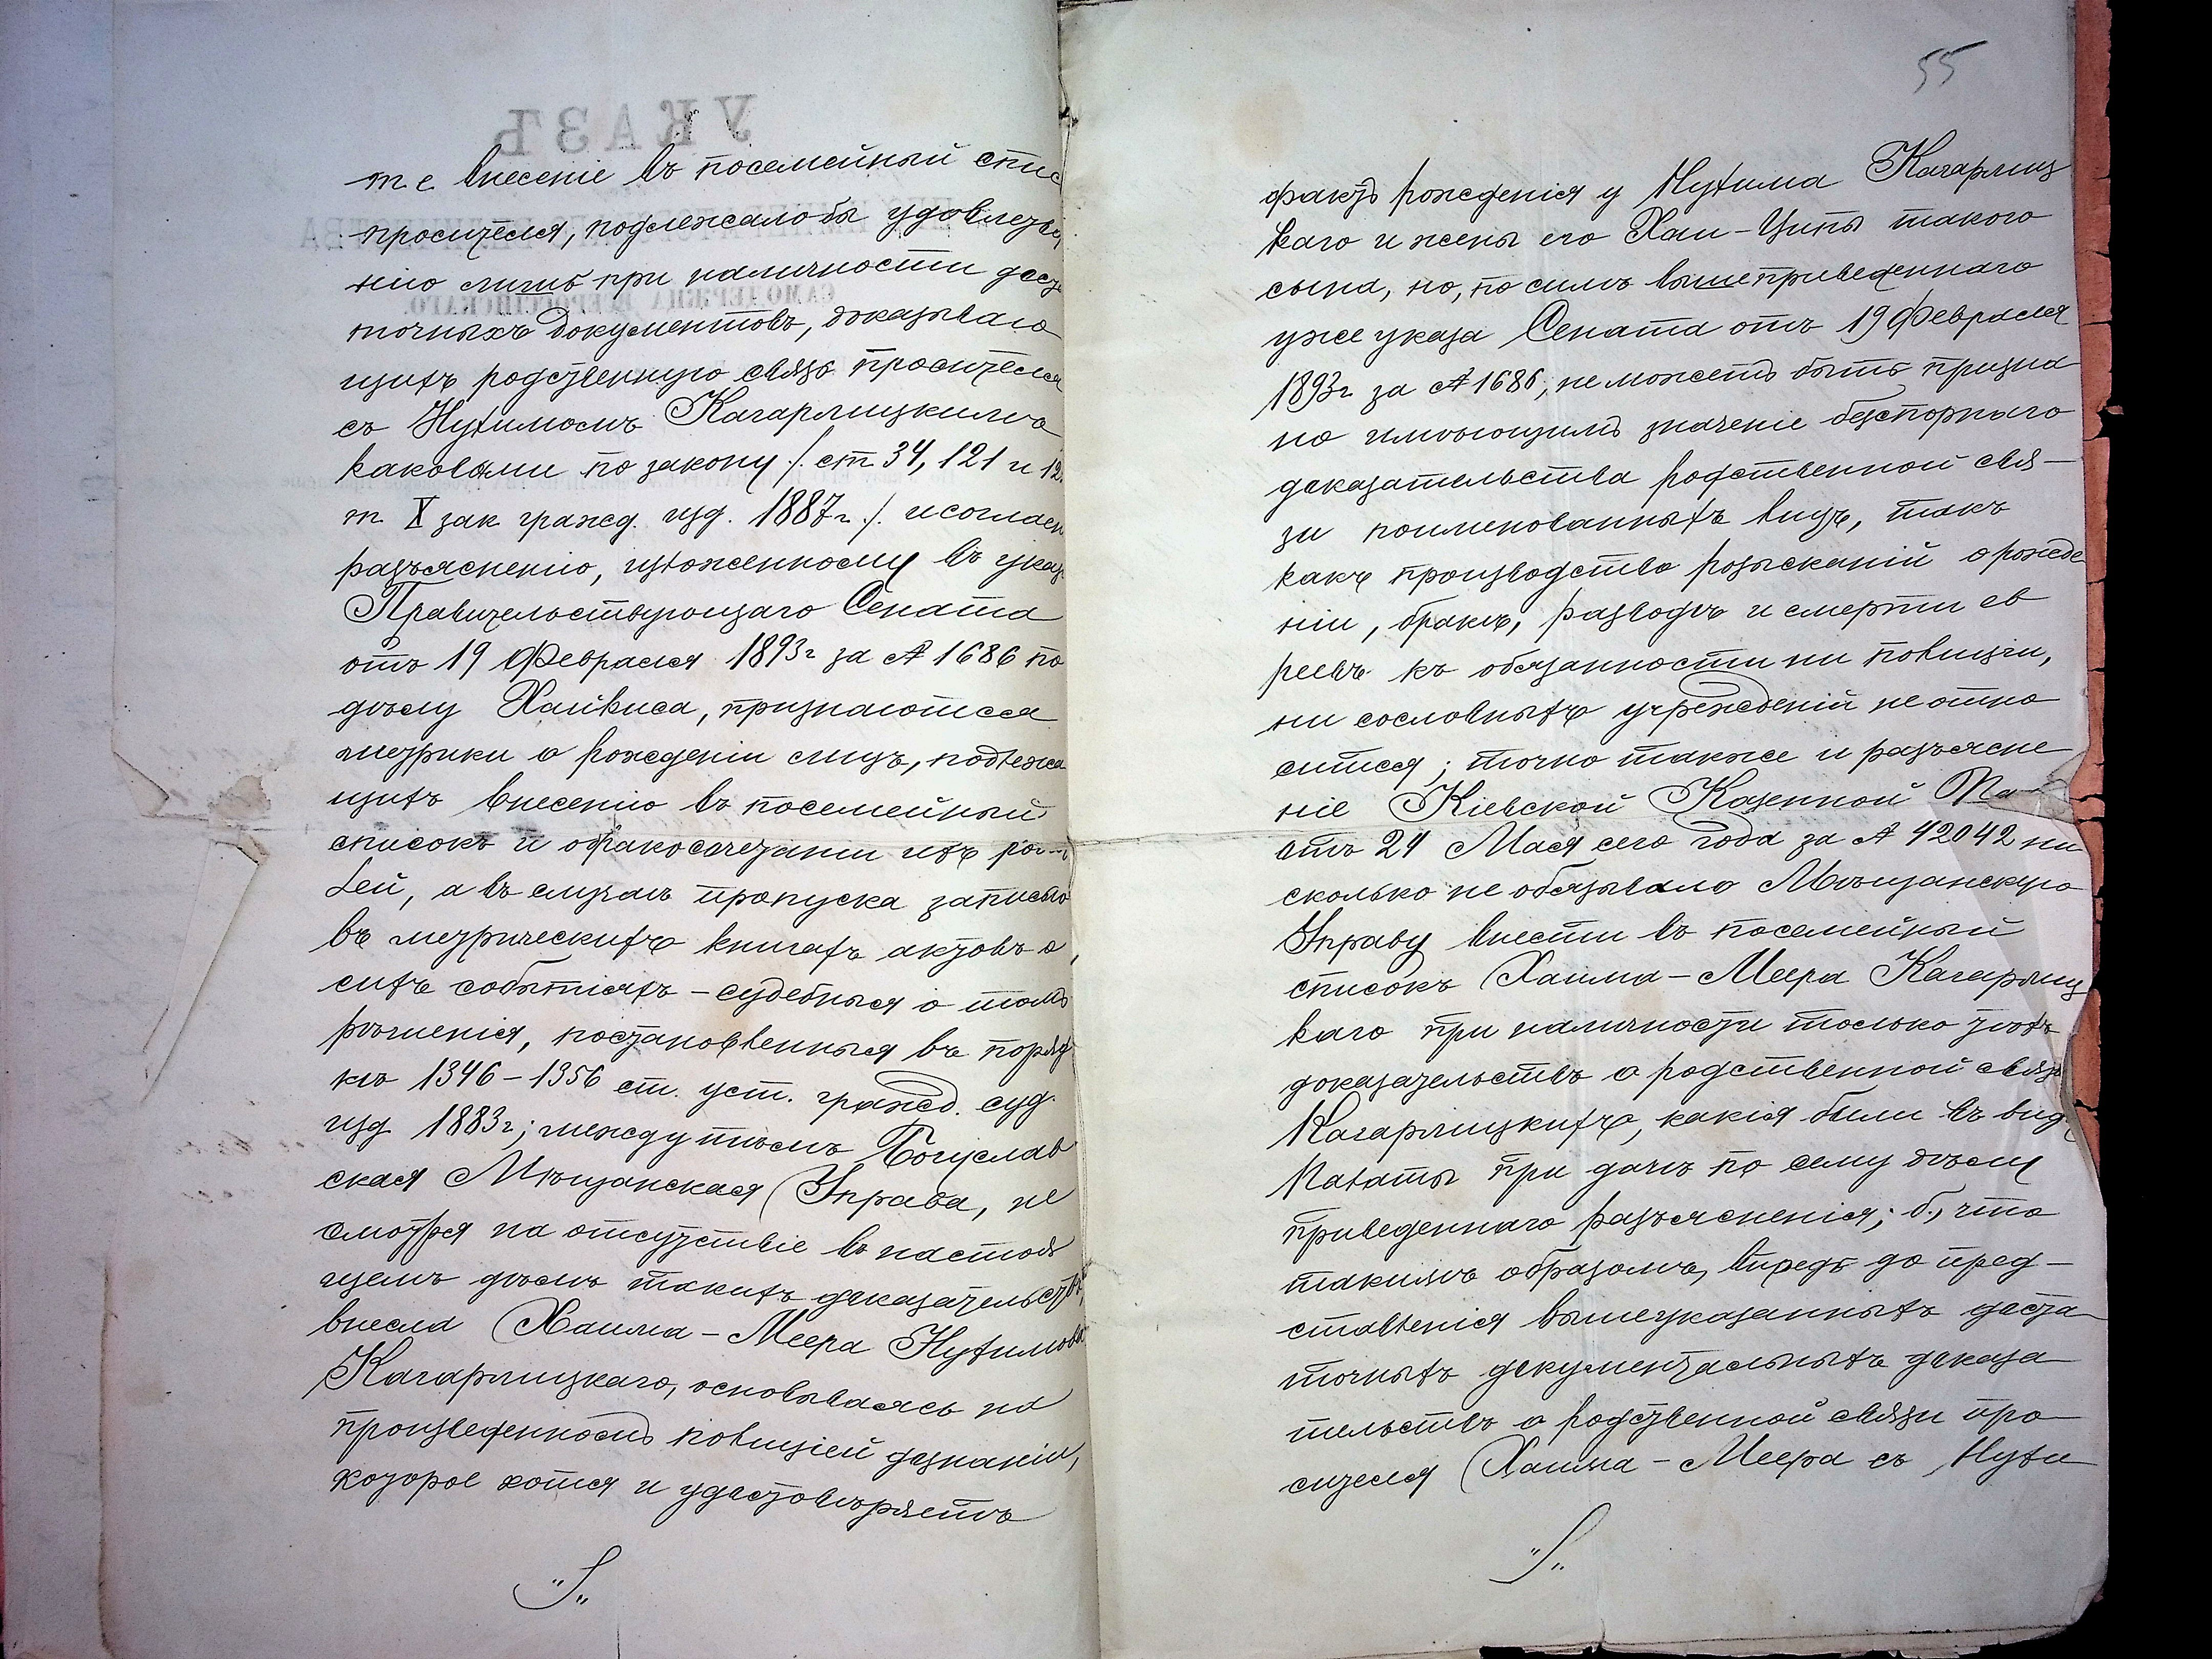 т. е. внесеніе въ посемейный спис
просителя, подлежало бы удовлетво
нію лишь при наличности доста
точныхъ документовъ, доказываю
щихъ родственную связь просителя
съ Нухимомъ Кагарлицкимъ
каковыми по закону /. ст 34, 121 и 12
т X зак гражд. изд. 1887 г ./. и соглас
разъясненію, изложенному въ указ
Правительствующаго Сената
отъ 19 Февраля 1893 г за № 1686 по
дѣлу Хайкиса, признаются
метрики о рожденіи лицъ, подлежа
щихъ внесенію въ посемейный
списокъ и обракосочетаніи ихъ ро
лей, а въ случаѣ пропуска записью
въ метрическихъ книгахъ актовъ о
сихъ событіяхъ – судебныя о томъ
рѣшенія, постановленныя въ поряд
кѣ 1346 – 1356 ст. уст. гражд. суд.
изд 1883 г; между тѣмъ Богуслав
ская Мѣщанская Управа, не
смотря на отсутствіе въ настоя
щемъ дѣлѣ такихъ доказательствъ,
внесла Хаима – Меера Нухимова
Кагарлицкаго, основываясь на
произведенномъ полиціей дознаніи,
которое хотя и удостовѣряетъ
"/."
УКАЗЪ
55
фактъ рожденія у Нухима Кагарлиц
каго и жены его Хаи – Ципы такого
сына, но, по силѣ вышеприведеннаго
уже указа Сената отъ 19 Февраля
1893 г за № 1686, не можетъ быть призна
но имѣющимъ значеніе безспорнаго
доказательства родственной свя –
зи поименованныхъ лицъ, такъ
какъ производство розысканій о рожде
ніи, бракѣ, разводѣ и смерти ев
реевъ къ обязанности ни полиціи,
ни сословныхъ учрежденій не отно
сится; точно также и разъясне
ніе Кіевской Казенной Па
отъ 24 Мая сего года за № 42042 ни
сколько не обязывало Мѣщанскую
Управу внести въ посемейный
списокъ Хаима – Меера Кагарлиц
каго при наличности только тѣхъ
доказательствъ о родственной связи
Кагарлицкихъ, какія были въ виду
Палаты при дачѣ по сему дѣлу
приведеннаго разъясненія; б., что
такимъ образомъ, впредь до пред –
ставленія вышеуказанныхъ доста
точныхъ документальныхъ доказа
тельствъ о родственной связи про
сителя Хаима – Меера съ Нухи
"/."